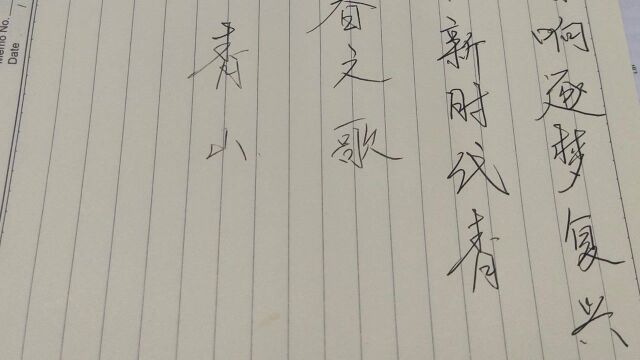 响逐梦复兴
新时代青
春之歌
青小
Memo No.
Date /